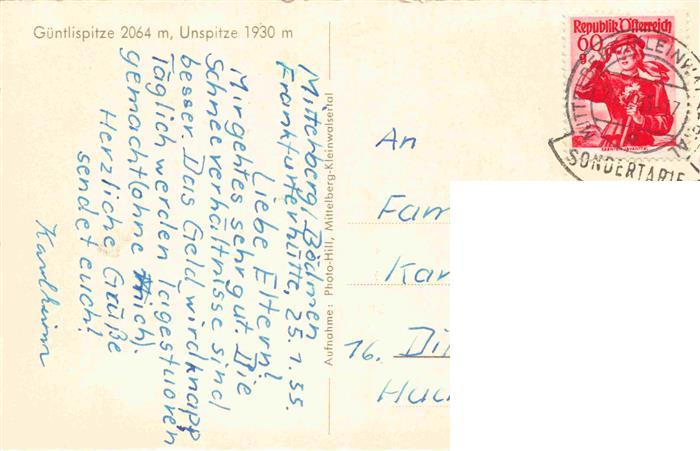 Güntlispitze 2064 m, Unspitze 1930 m
Mittelberg/Bödmen
Frankfurterhütte, 25.1.55.
Liebe Eltern!
Mir geht es sehr gut. Die
Schneeverhältnisse sind
besser. Das Geld wird knapp
Täglich werden Tagestouren
gemacht (ohne mich).
Herzliche Grüße
sendet euch!
Karlheinz
Aufnahme: Photo-Hill, Mittelberg-Kleinwalsertal
Republik Österreich
60
g
SONDERTARIF
An
Fam
Kar
16. Di